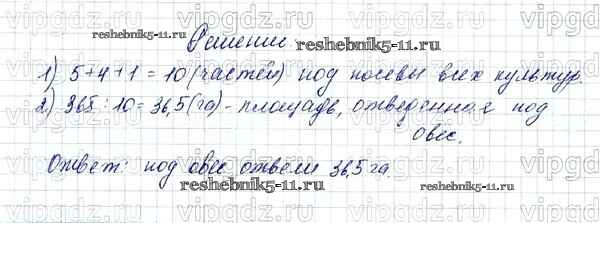 Решение.
1) 5+4+1=10 (частей) под посевы всех культур.
2) 365:10=36,5(га)-площадь, отведенная под
овес.
Ответ: под овес отвели 36,5 га.
reshebnik5-11.ru
reshebnik5-11.ru
reshebnik5-11.ru
reshebnik5-11.ru
reshebnik5-11.ru
vipgdz.ru